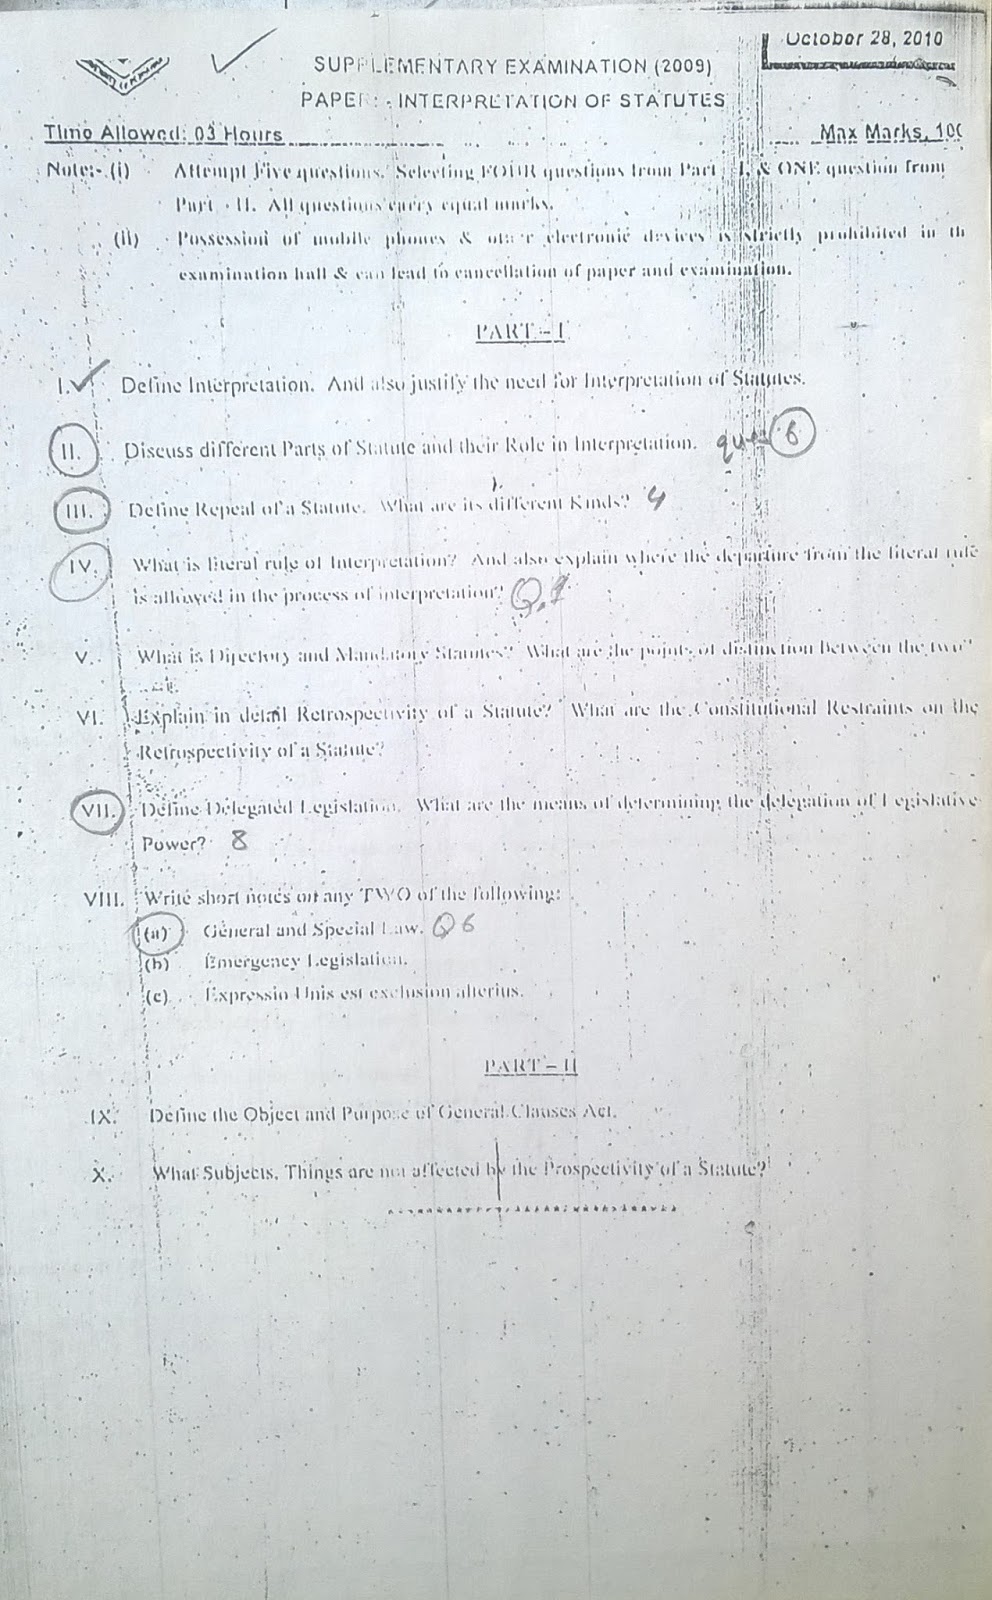 October 28, 2010
SUPPLEMENTARY EXAMINATION (2009)
PAPER: - INTERPRETATION OF STATUTES
Time Allowed: 03 Hours Max Marks. 100
Note:- (i) Attempt Five questions. Selecting FOUR questions from Part - I, & ONE question from
Part - II. All questions carry equal marks.
(ii) Possession of mobile phones & other electronic devices is strictly prohibited in th
examination hall & can lead to cancellation of paper and examination.
PART - I
I. Define Interpretation. And also justify the need for Interpretation of Statutes.
II. Discuss different Parts of Statute and their Role in Interpretation. ques 6
III. Define Repeal of a Statute. What are its different Kinds? 4
IV. What is literal rule of Interpretation? And also explain where the departure from the literal rule
is allowed in the process of interpretation? Q.1
V. What is Directory and Mandatory Statutes? What are the points of distinction between the two?
VI. Explain in detail Retrospectivity of a Statute? What are the Constitutional Restraints on the
Retrospectivity of a Statute?
VII. Define Delegated Legislation. What are the means of determining the delegation of Legislative
Power? 8
VIII. Write short notes on any TWO of the following:
(a) General and Special Law. Q 6
(b) Emergency Legislation.
(c) Expressio Unis est exclusion alterius.
PART - II
IX. Define the Object and Purpose of General Clauses Act.
X. What Subjects, Things are not affected by the Prospectivity of a Statute?